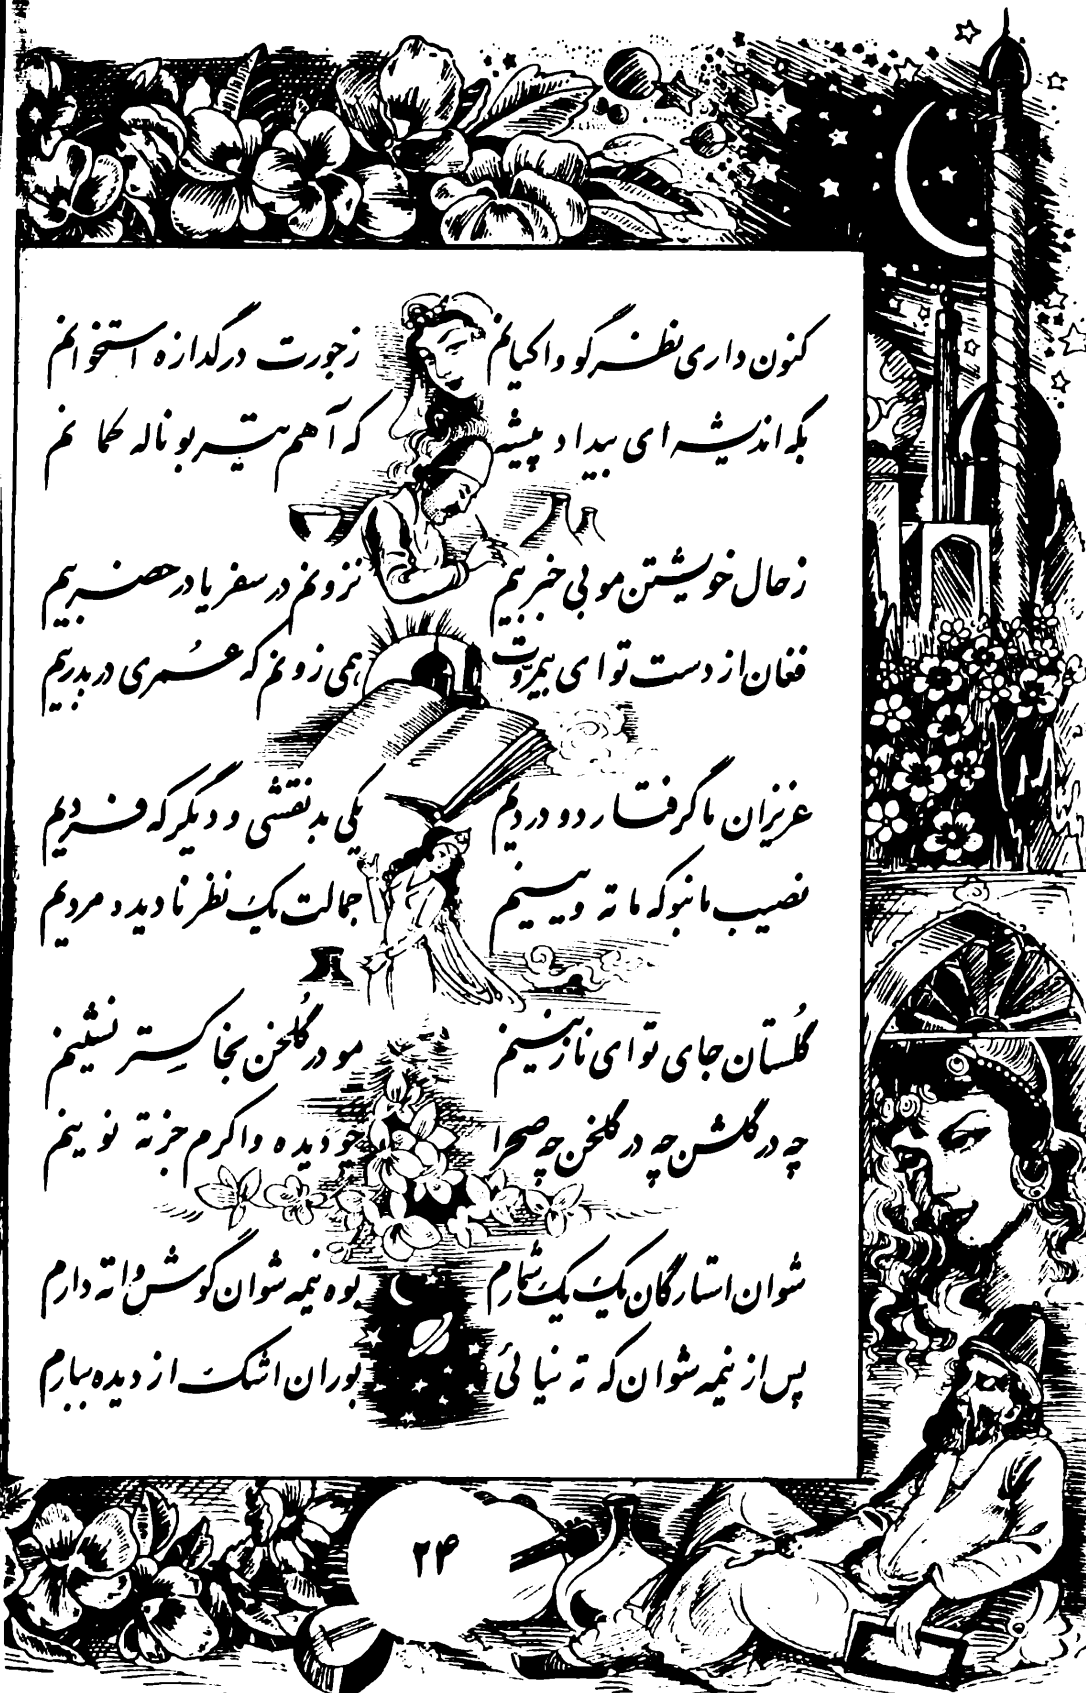 کنون داری نظر گو واکیانم
ز جورت در گدازه استخوانم
بکه اندیشه‌ای بیداد پیشه
که آهم تیر بو ناله کمانم
ز حال خویشتن مو بی خبر بیم
نزونم در سفر یا در حضر بیم
فغان از دست تو ای بیمروت
همی زونم که عُمری دربدر بیم
عزیزان ما گرفتار دو دردیم
یکی بدنقشی و دیگر که فردیم
نصیب ما نبو که ما ته وینیم
جمالت یک نظر نادیده مردیم
گلُستان جای تو ای نازنینم
مو در گلُخن بخاکستر نشینم
چه در گلشن چه در گلخن چه صحرا
چو دیده واکرم جز ته نوینم
شوان استارگان یک یک شمارم
بوه نیمه شوان گوش واته دارم
پس از نیمه شوان که ته نیائی
بوران اشک از دیده ببارم
۲۴